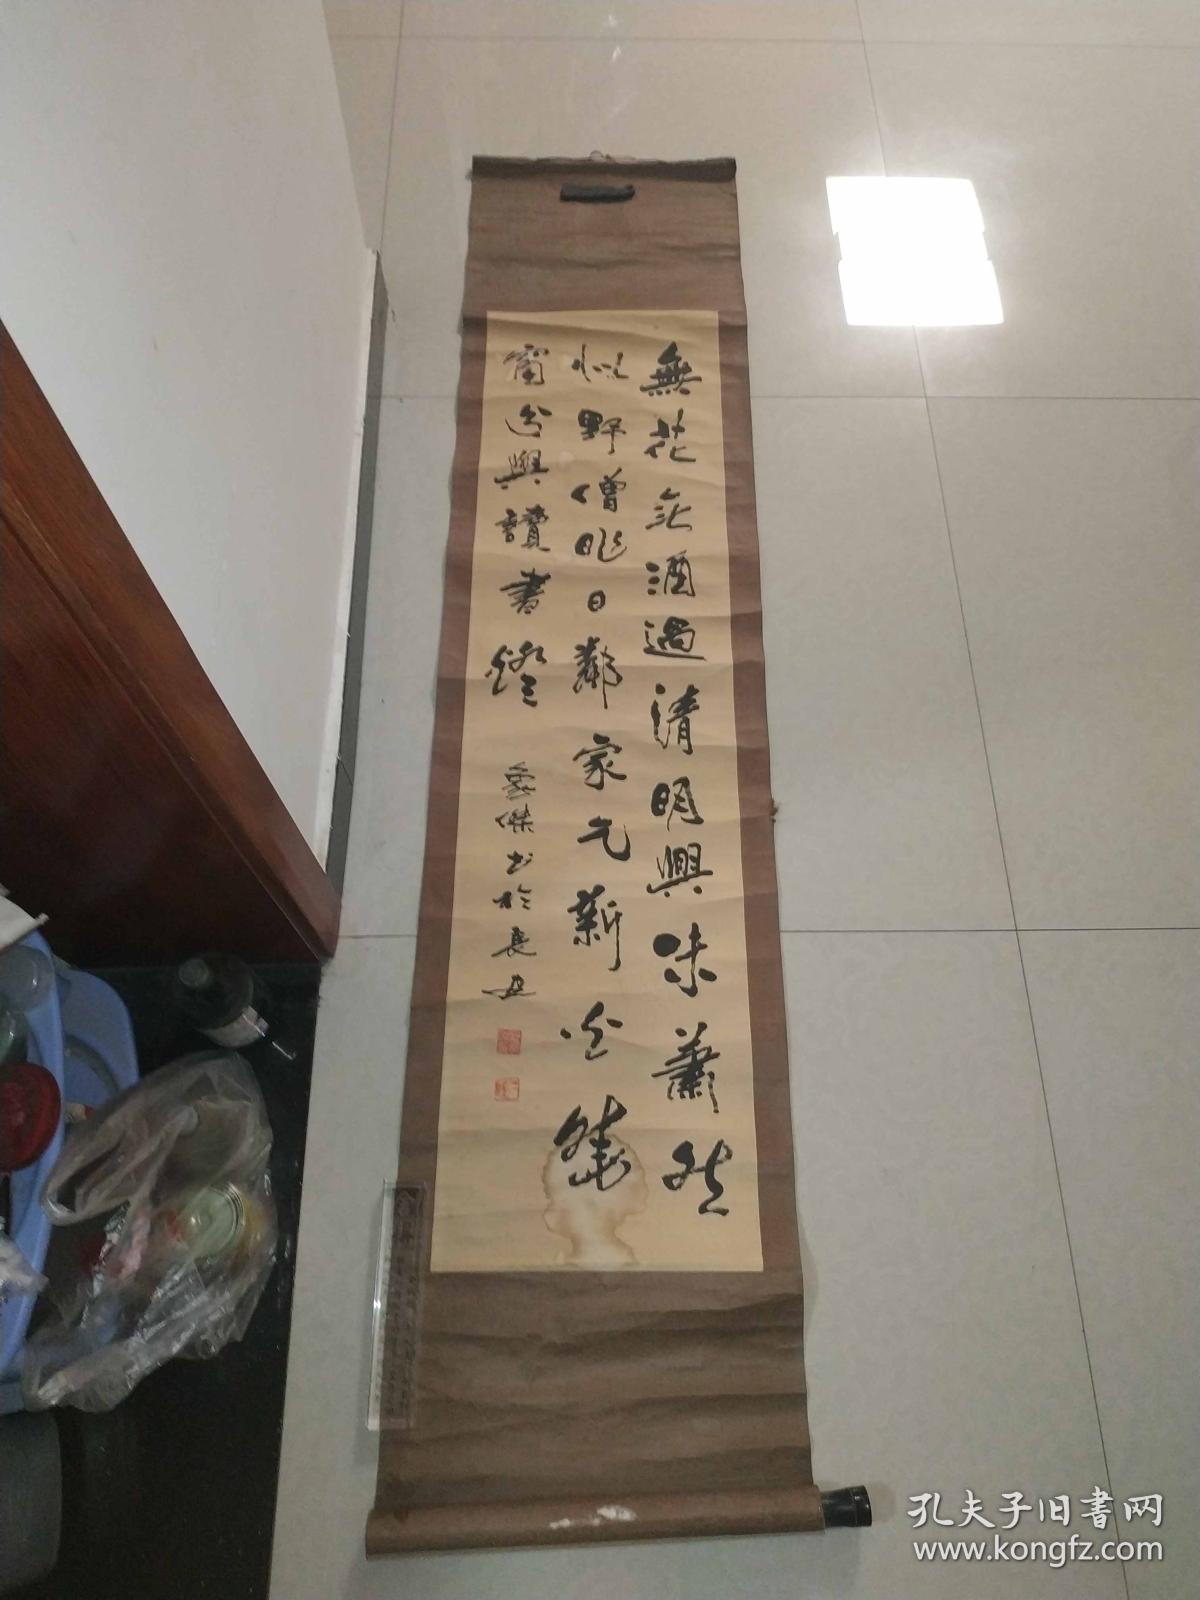 無花無酒過清明興味蕭然
似野僧昨日鄰家乞新火曉
窗分與讀書燈
傑书於長安
孔夫子旧書网
www.kongfz.com